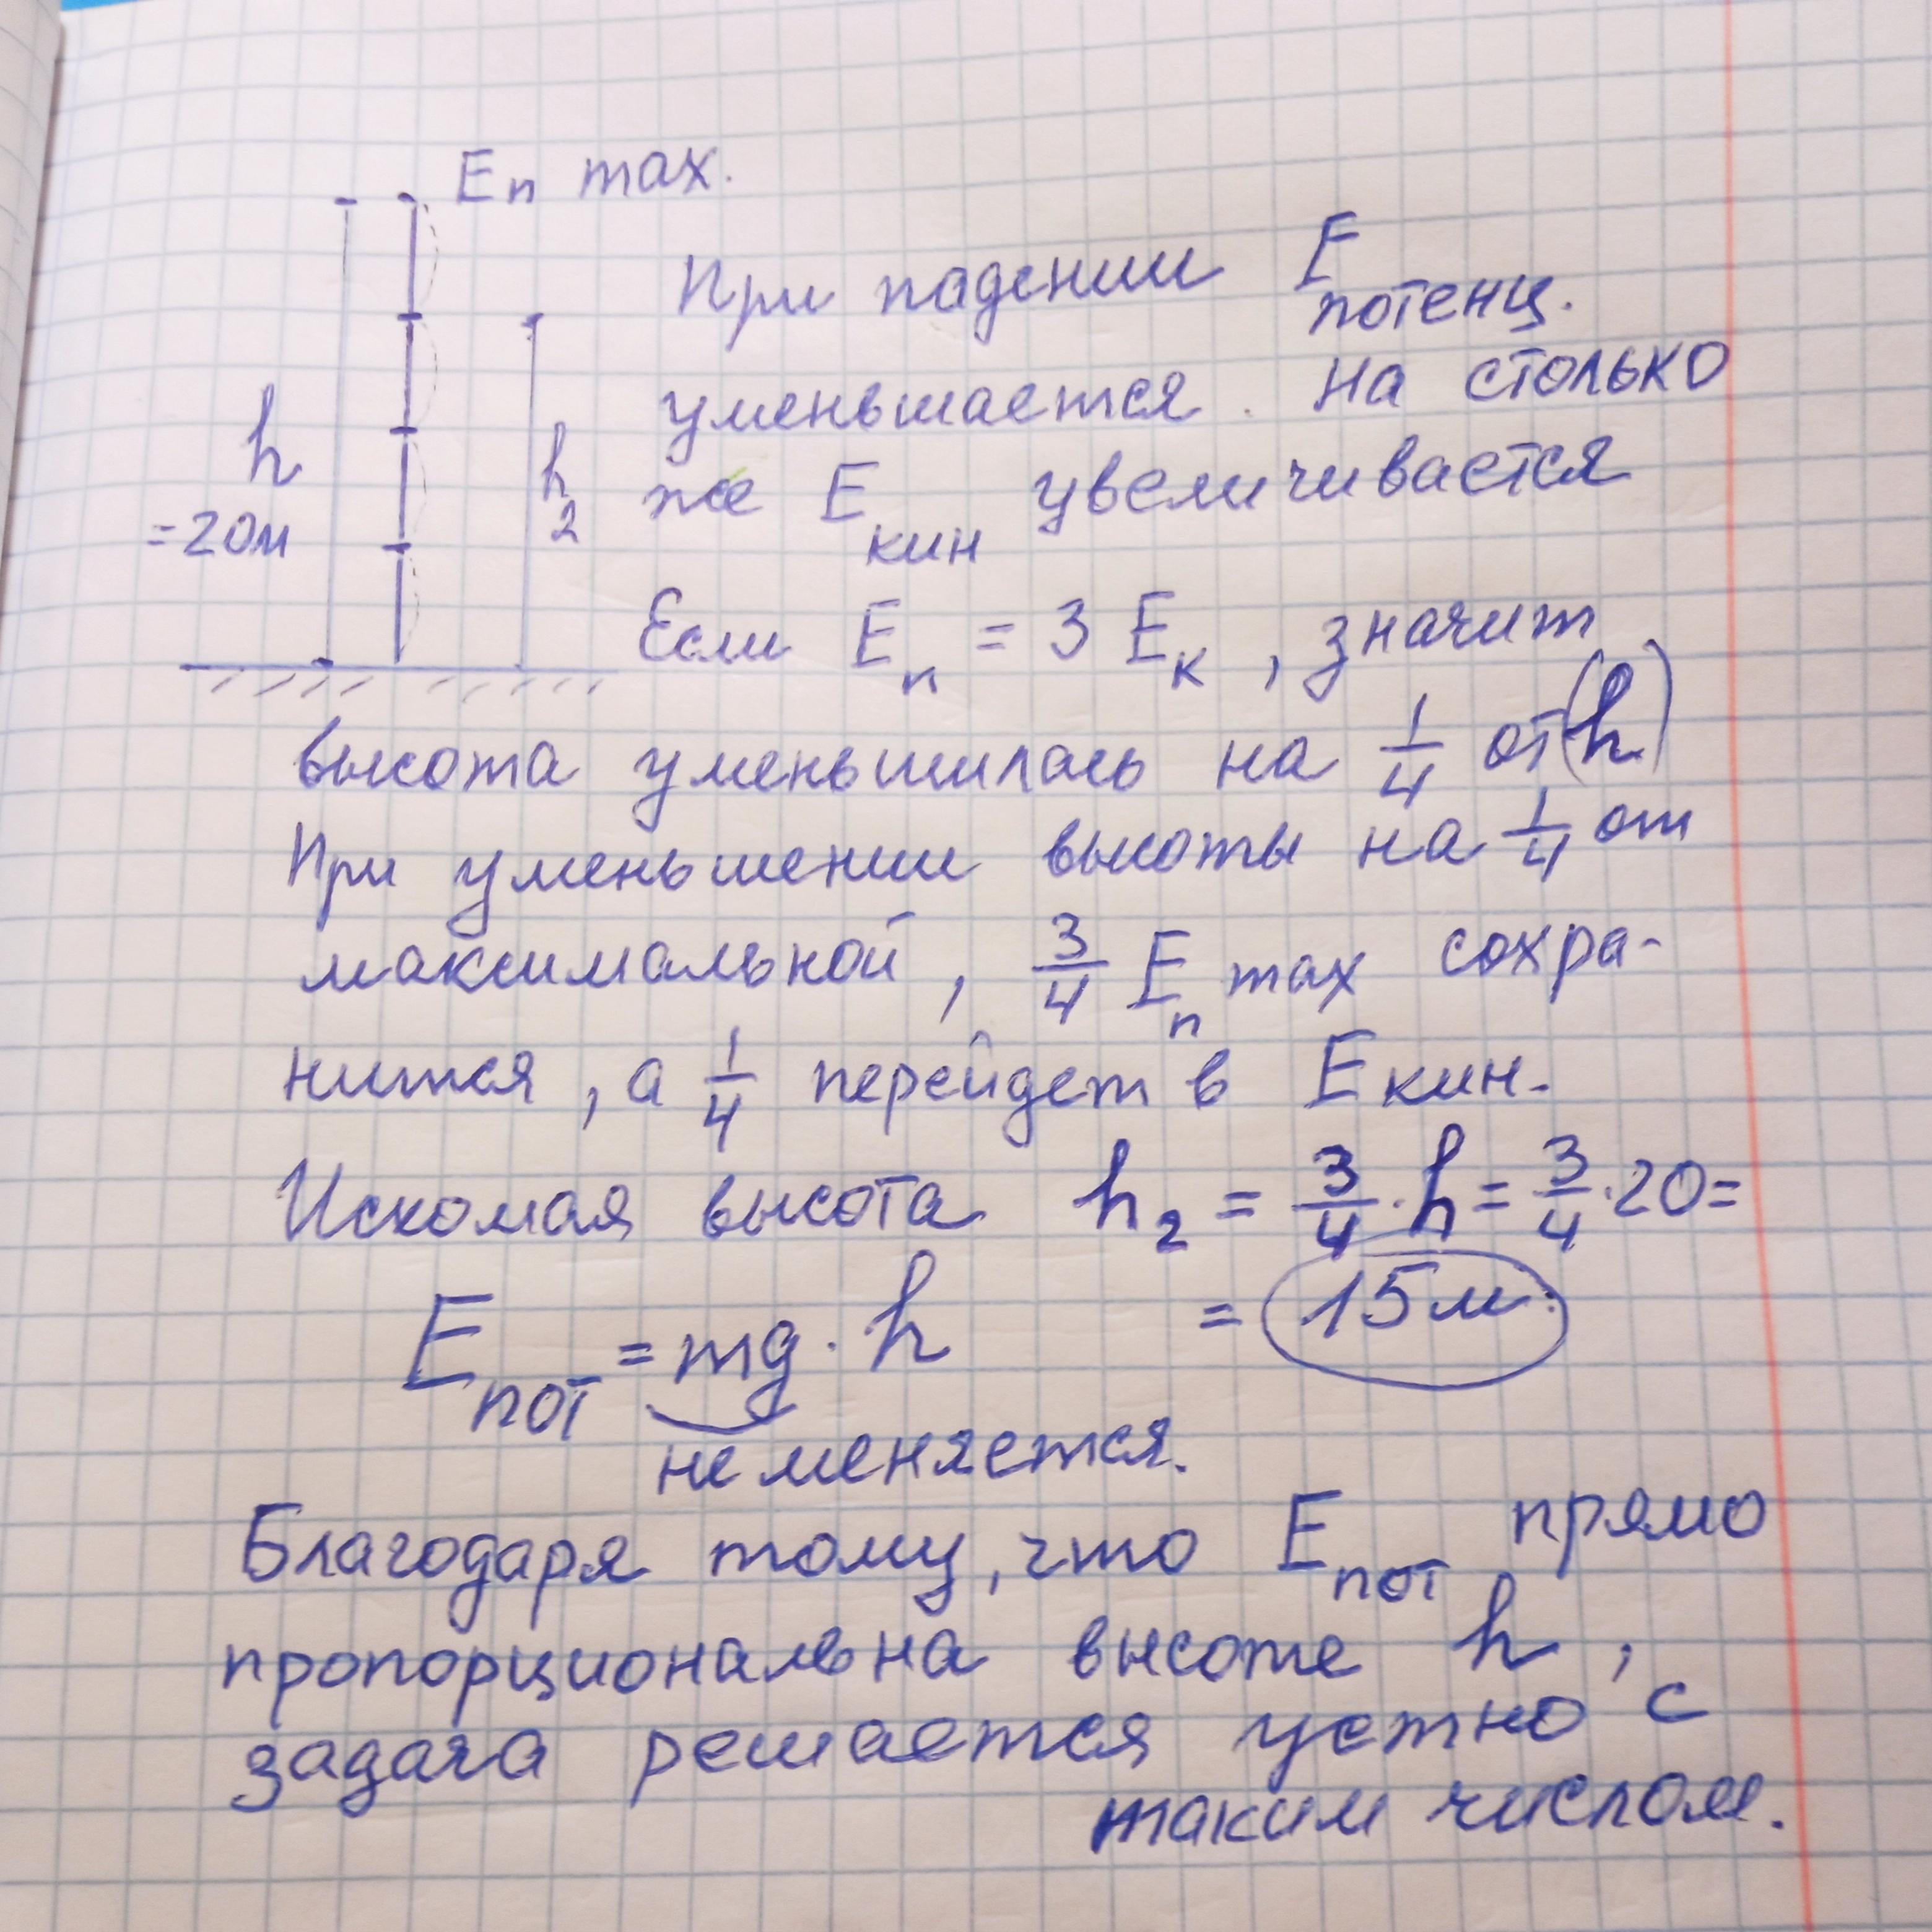 Eп max.
При падении E потенц.
уменьшается. На столько
же E кин увеличивается
h
= 20м
h2
Если Eп = 3 Eк, значит
высота уменьшилась на 1/4 от (h)
При уменьшении высоты на 1/4 от
максимальной, 3/4 Eп max сохра-
нится, а 1/4 перейдет в E кин.
Искомая высота h2 = 3/4 · h = 3/4 · 20 =
= 15м.
Eпот = mg · h
не меняется.
Благодаря тому, что Eпот прямо
пропорциональна высоте h,
задача решается устно с
таким числом.